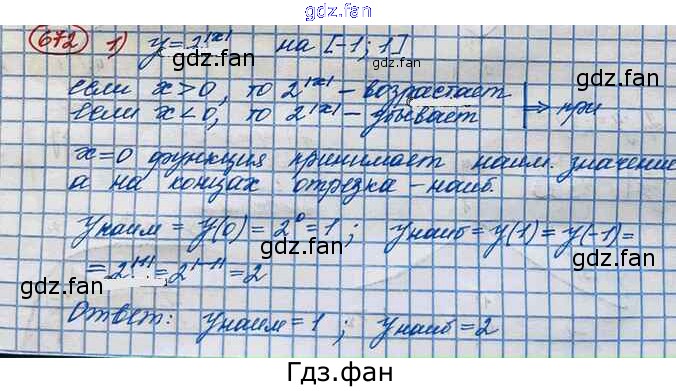 gdz.fan
672 1) y = 2^|x| на [-1; 1]
если x > 0, то 2^|x| - возрастает
если x < 0, то 2^|x| - убывает ⇒ при
x=0 функция принимает наим. значение
а на концах отрезка - наиб.
yнаим = y(0) = 2^0 = 1 ; yнаиб = y(1) = y(-1) =
= 2^|1| = 2^|-1| = 2
Ответ: yнаим = 1 ; yнаиб = 2
gdz.fan
gdz.fan
gdz.fan
gdz.fan
gdz.fan
gdz.fan
gdz.fan
gdz.fan
gdz.fan
Гдз.фан